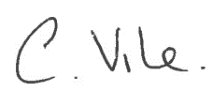 C. Vile.